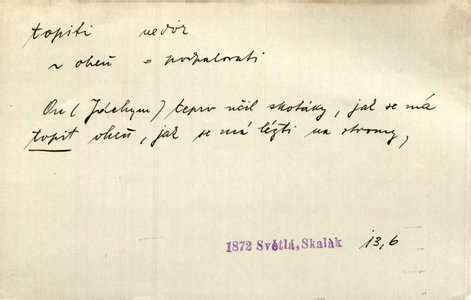 topiti nedok
~ oheň = podpalovati
On (Jáchym) teprv učil skotáky, jak se má
topit oheň, jak se má lézti na stromy,
1872 Světlá, Skalák 13,6